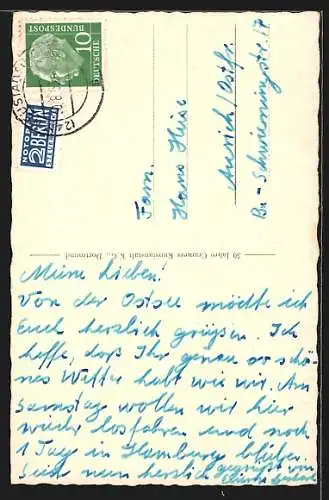 10
DEUTSCHE
BUNDESPOST
NOTOPFER
2 BERLIN
STEUERMARKE
Fam.
Hans Heise
Aurich/Ostfr.
50 Jahre Cramers Kunstanstalt K.G., Dortmund
Meine Lieben!
Von der Ostsee möchte ich
Euch herzlich grüßen. Ich
hoffe, daß Ihr genau so schö-
nes Wetter habt wie wir. Am
Samstag wollen wir hier
wieder losfahren und noch
1 Tag in Hamburg bleiben.
Seid nun herzlich gegrüßt von